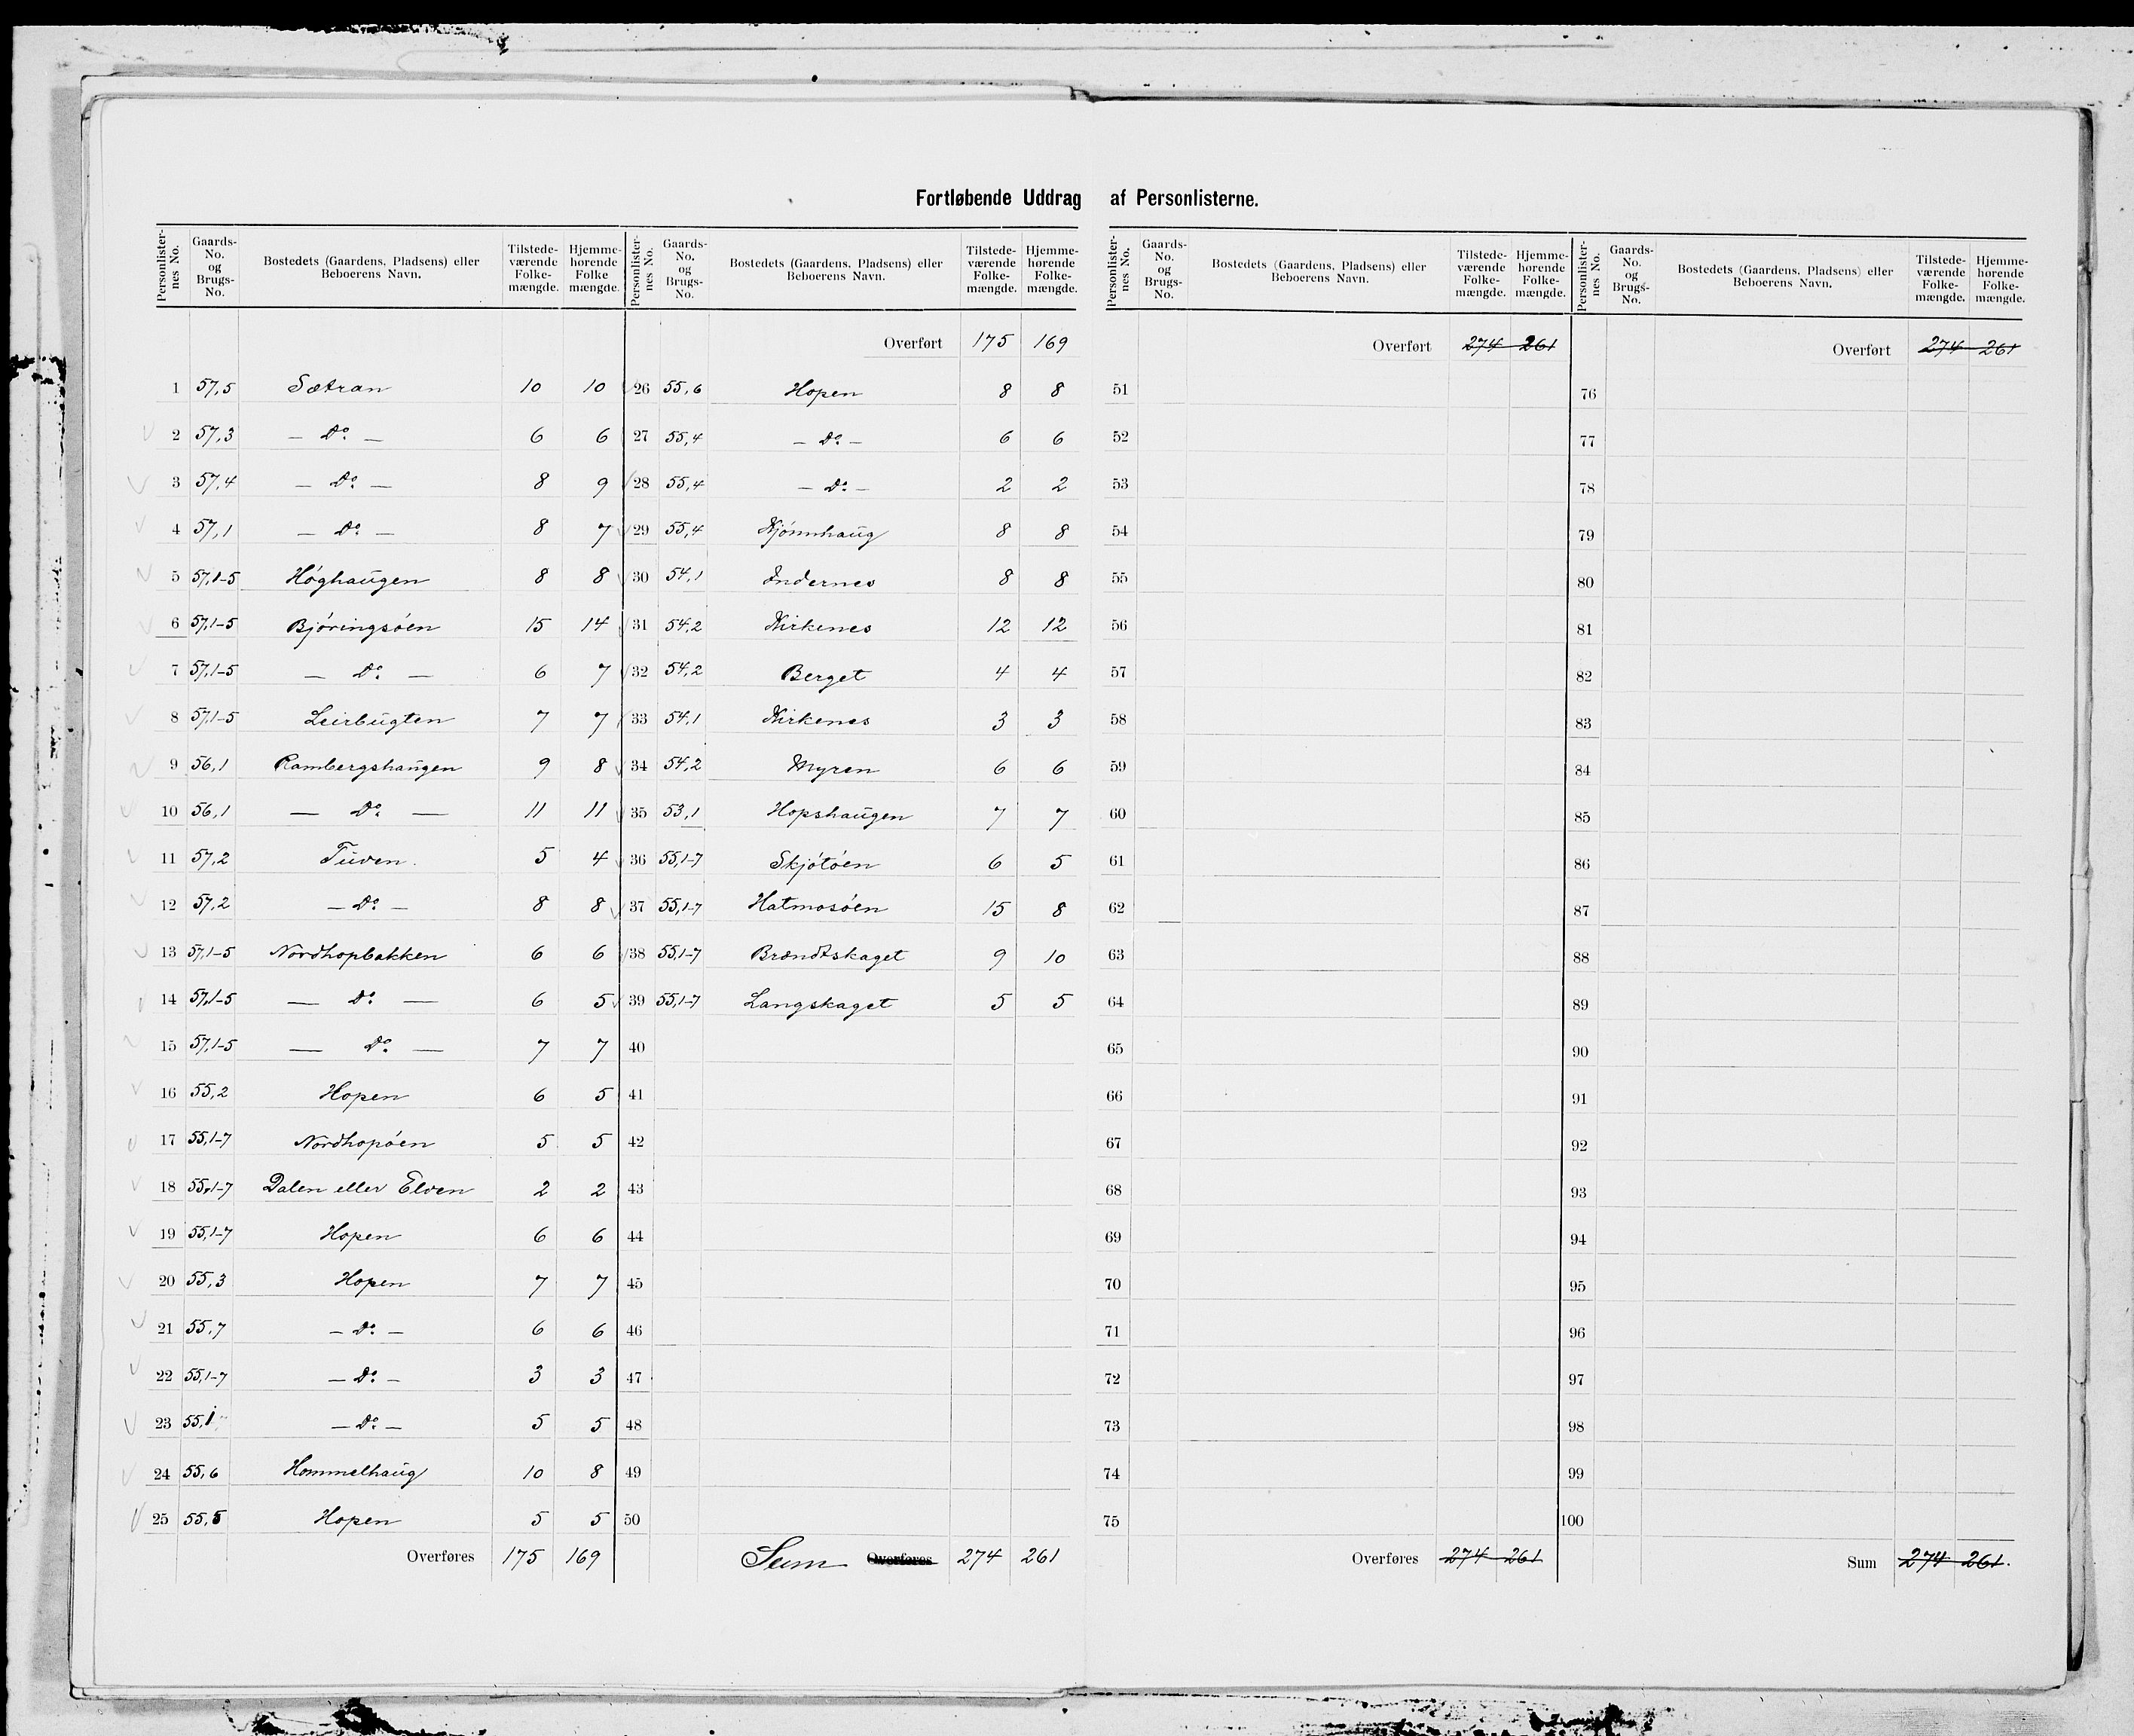 Fortløbende Uddrag af Personlisterne.
Personlister-nes No. Gaards-No. og Brugs-No. Bostedets (Gaardens, Pladsens) eller Beboerens Navn. Tilstede-værende Folke-mængde. Hjemme-hørende Folke mængde.
1 57,5 Sætran 10 10
2 57,3 — Do — 6 6
3 57,4 — Do — 8 9
4 57,1 — Do — 8 7
5 57,1-5 Höghaugen 8 8
6 57,1-5 Björingsöen 15 14
7 57,1-5 — Do — 6 7
8 57,1-5 Leirbugten 7 7
9 56,1 Rambergshaugen 9 8
10 56,1 — Do — 11 11
11 57,2 Tuven. 5 4
12 57,2 — Do — 8 8
13 57,1-5 Nordhopbakken 6 6
14 57,1-5 — Do — 6 5
15 57,1-5 — Do — 7 7
16 55,2 Hopen 6 5
17 55,1-7 Nordhopöen 5 5
18 55,1-7 Dalen eller Elven 2 2
19 55,1-7 Hopen 6 6
20 55,3 Hopen 7 7
21 55,7 — Do — 6 6
22 55,1-7 — Do — 3 3
23 55,1 — Do — 5 5
24 55,6 Hommelhaug 10 8
25 55,5 Hopen 5 5
Overføres 175 169
Personlister-nes No. Gaards-No. og Brugs-No. Bostedets (Gaardens, Pladsens) eller Beboerens Navn. Tilstede-værende Folke-mængde. Hjemme-hørende Folke-mængde.
Overført 175 169
26 55,6 Hopen 8 8
27 55,4 — Do — 6 6
28 55,4 — Do — 2 2
29 55,4 Kjönnhaug 8 8
30 54,1 Indernes 8 8
31 54,2 Kirkenes 12 12
32 54,2 Berget 4 4
33 54,1 Kirkenes 3 3
34 54,2 Myren 6 6
35 53,1 Hopshaugen 7 7
36 55,1-7 Skjötöen 6 5
37 55,1-7 Hatmosöen 15 8
38 55,1-7 Brændtskaget 9 10
39 55,1-7 Langskaget 5 5
40
41
42
43
44
45
46
47
48
49
50
Sum Overføres 274 261
Personlister-nes No. Gaards-No. og Brugs-No. Bostedets (Gaardens, Pladsens) eller Beboerens Navn. Tilstede-værende Folke-mængde. Hjemme-hørende Folke-mængde.
Overført 274 261
51
52
53
54
55
56
57
58
59
60
61
62
63
64
65
66
67
68
69
70
71
72
73
74
75
Overføres 274 261
Personlister-nes No. Gaards-No. og Brugs-No. Bostedets (Gaardens, Pladsens) eller Beboerens Navn. Tilstede-værende Folke-mængde. Hjemme-hørende Folke-mængde.
Overført 274 261
76
77
78
79
80
81
82
83
84
85
86
87
88
89
90
91
92
93
94
95
96
97
98
99
100
Sum 274 261.